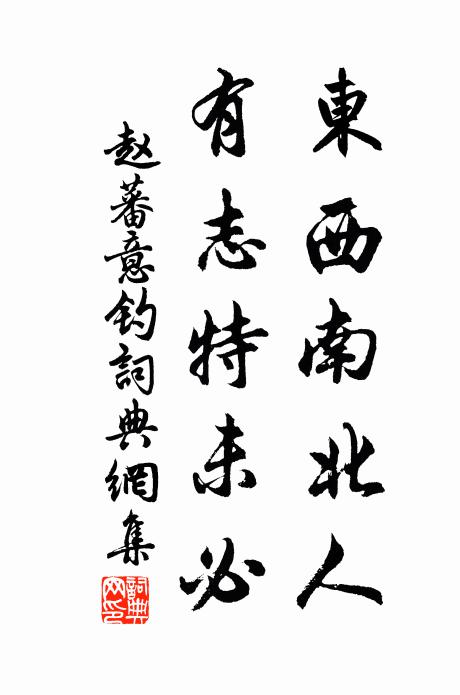 東西南北人
有志特未必
赵蕃意钓詞典網集
詞典
网印